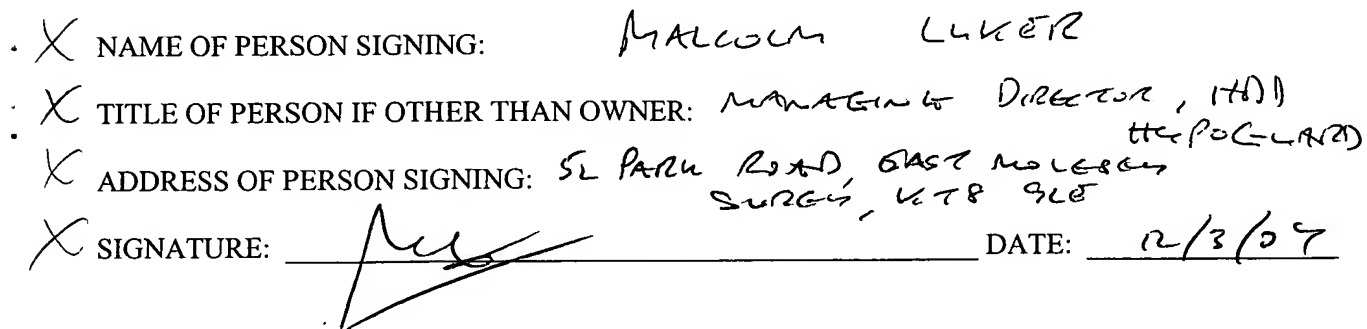 X NAME OF PERSON SIGNING: MALCOLM LUKER
X TITLE OF PERSON IF OTHER THAN OWNER: MANAGING DIRECTOR,
HYPOGUARD
X ADDRESS OF PERSON SIGNING: PARK ROAD, EAST MOLESEY
SURREY, KT8 9LE
X SIGNATURE: DATE: 12/3/07